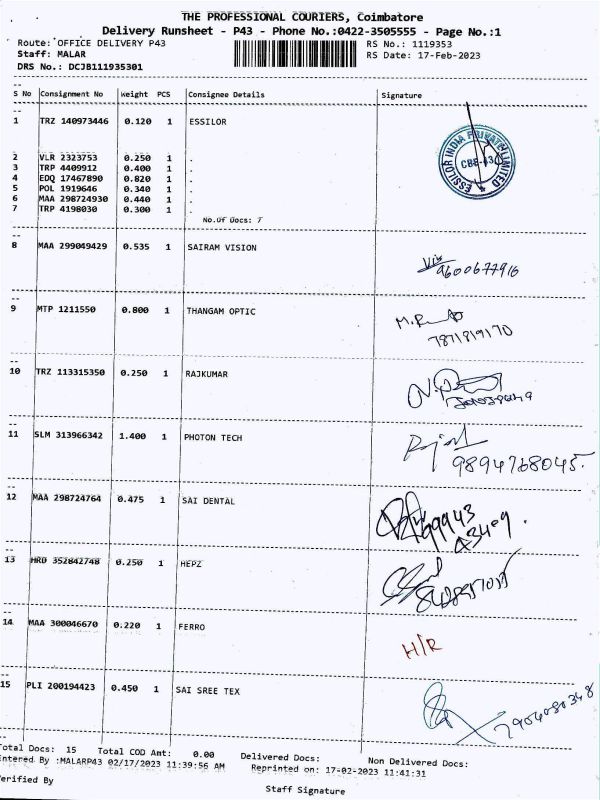 THE PROFESSIONAL COURIERS, Coimbatore
Delivery Runsheet - P43 - Phone No.:0422-3505555 - Page No.:1
Route: OFFICE DELIVERY P43 RS No.: 1119353
Staff: MALAR RS Date: 17-Feb-2023
DRS No.: DCJB111935301
S No Consignment No Weight PCS Consignee Details Signature
1 TRZ 140973446 0.120 1 ESSILOR
ESSILOR INDIA PRIVATE LIMITED
2 VLR 2323753 0.250 1 .
3 TRP 4409912 0.400 1 .
4 EDQ 17467890 0.820 1 .
5 POL 1919646 0.340 1 .
6 MAA 298724930 0.440 1 .
7 TRP 4198030 0.300 1 .
No.Of Docs: 7
8 MAA 299049429 0.535 1 SAIRAM VISION
9600677916
9 MTP 1211550 0.800 1 THANGAM OPTIC
7871819170
10 TRZ 113315350 0.250 1 RAJKUMAR
11 SLM 313966342 1.400 1 PHOTON TECH
9894768045.
12 MAA 298724764 0.475 1 SAI DENTAL
13 HRD 352842748 0.250 1 HEPZ
14 MAA 300046670 0.220 1 FERRO
H/R
15 PLI 200194423 0.450 1 SAI SREE TEX
7904080348
Total Docs: 15 Total COD Amt: 0.00 Delivered Docs: Non Delivered Docs:
Entered By :MALARP43 02/17/2023 11:39:56 AM Reprinted on: 17-02-2023 11:41:31
Verified By
Staff Signature